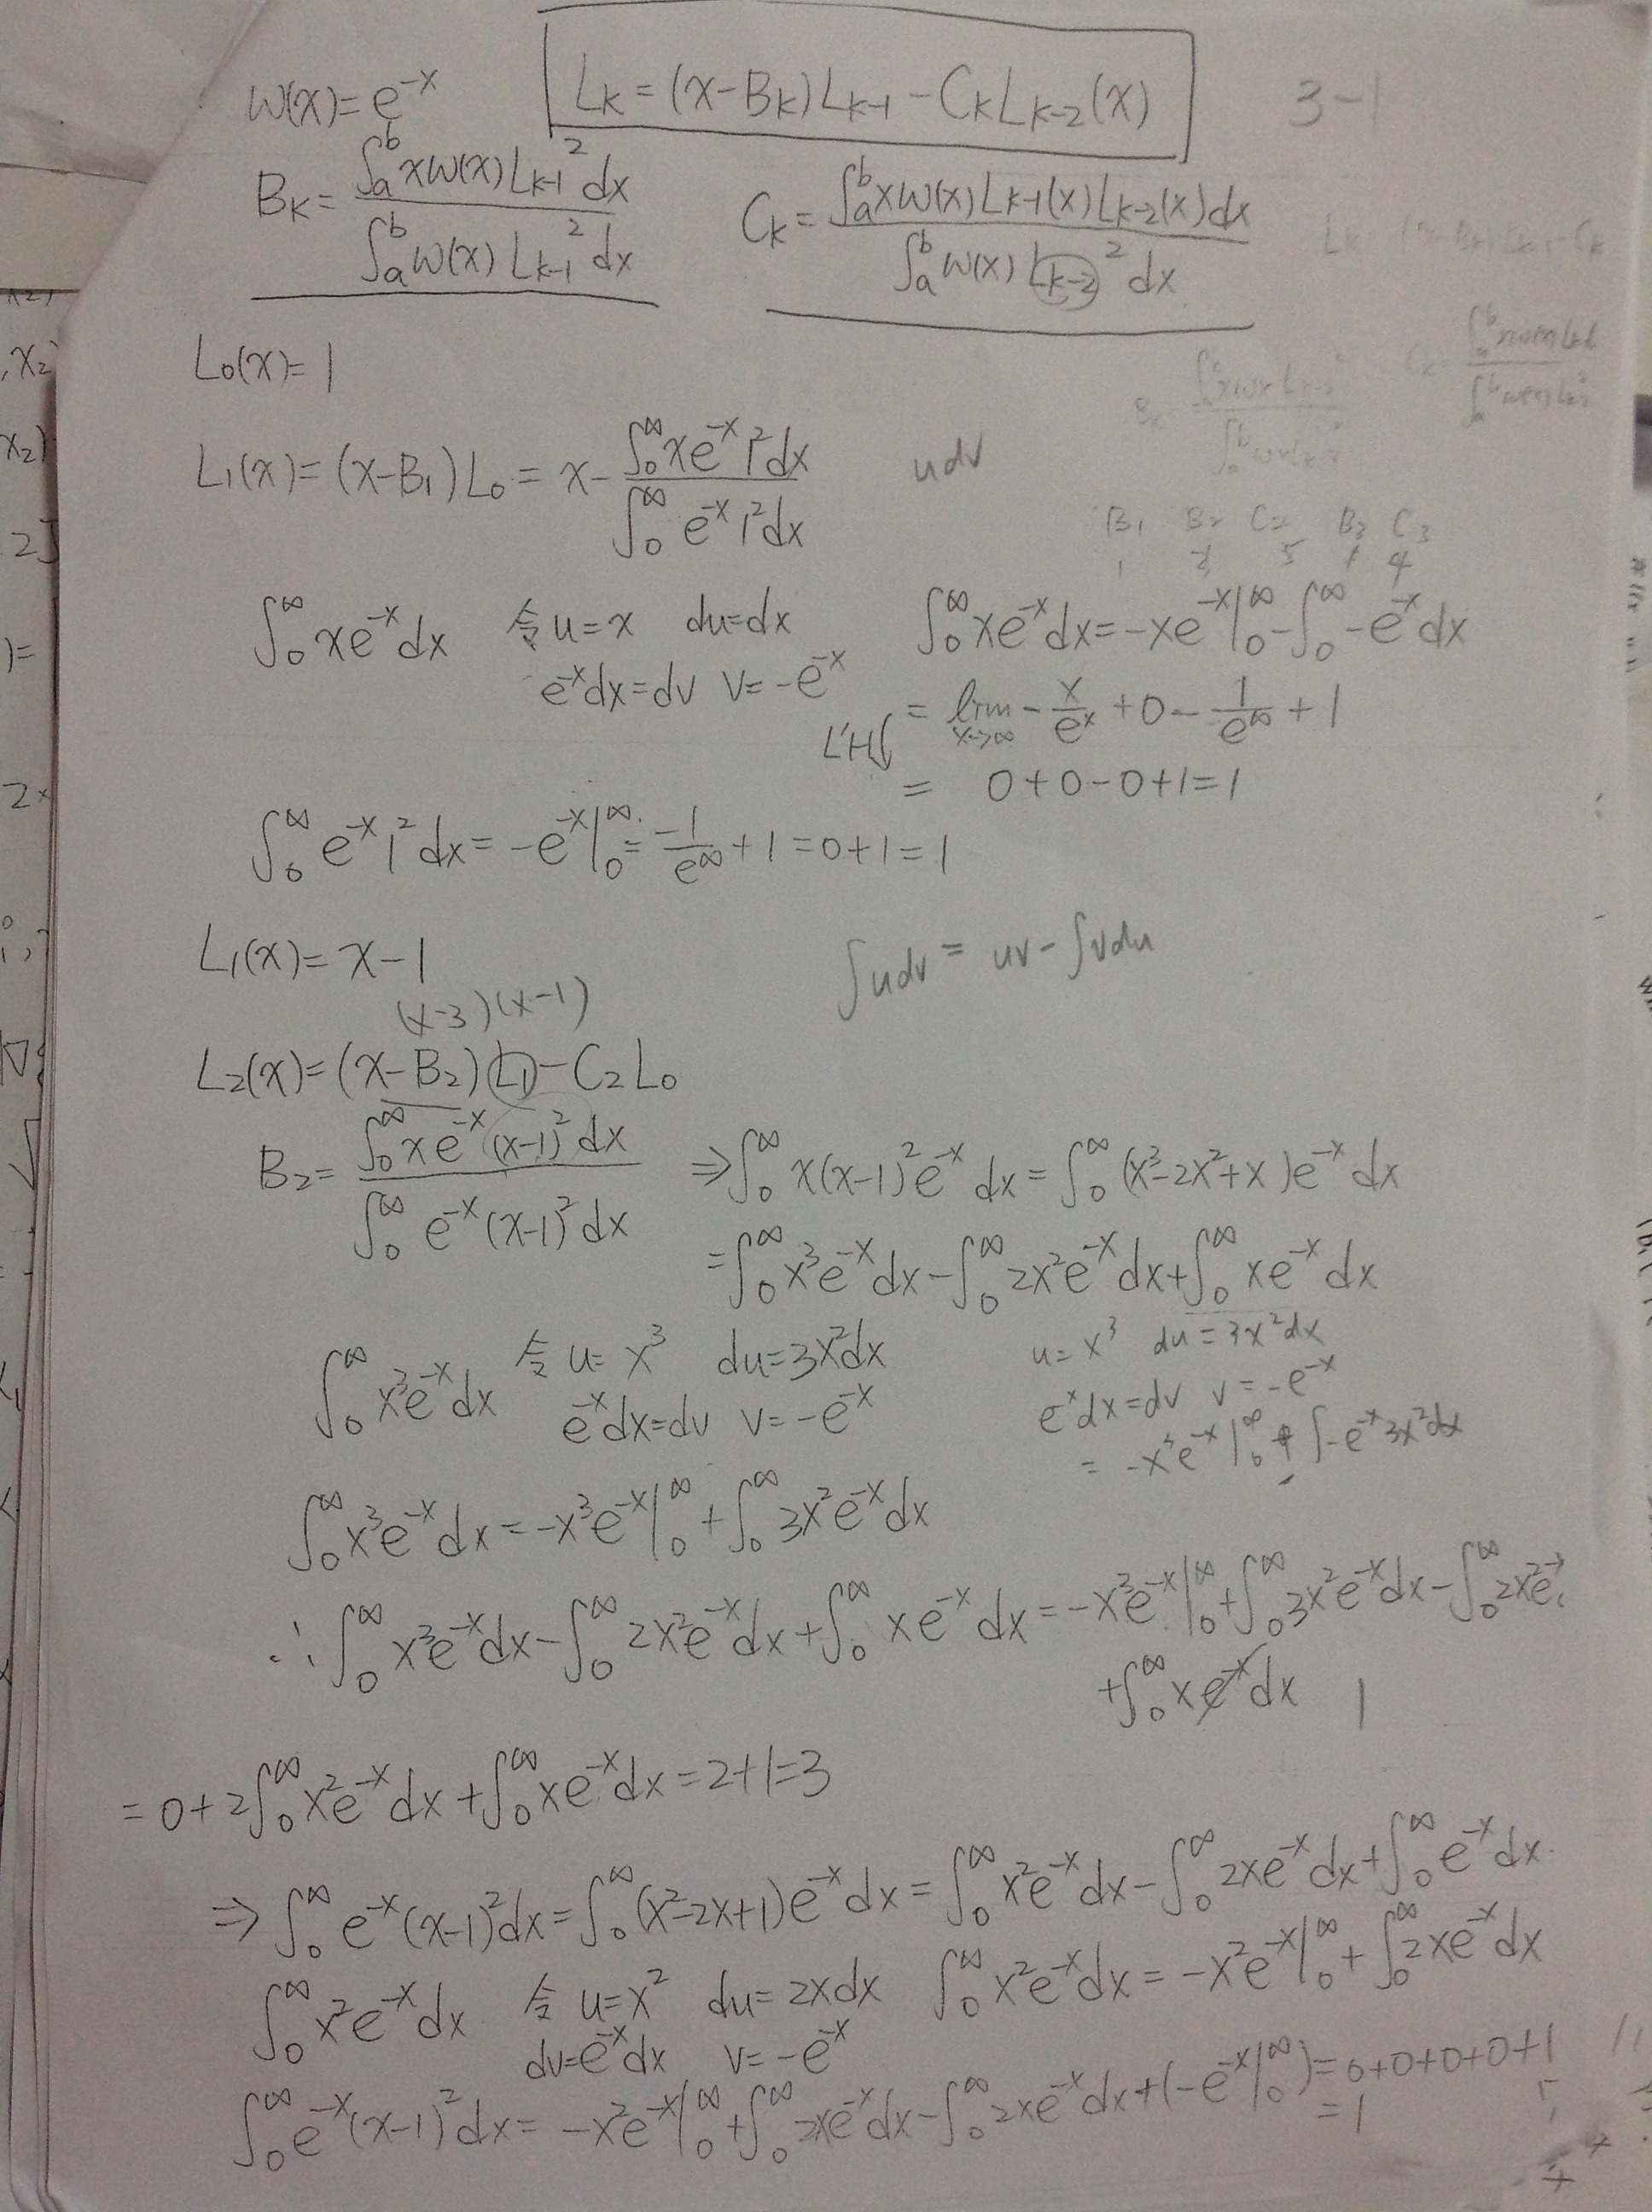 W(x)=e^{-x}
L_k=(x-B_k)L_{k-1}-C_kL_{k-2}(x)
3-1
B_k=\frac{∫_a^b xw(x)L_{k-1}^2dx}{∫_a^b w(x)L_{k-1}^2dx}
C_k=\frac{∫_a^b xw(x)L_{k-1}(x)L_{k-2}(x)dx}{∫_a^b w(x)L_{k-2}^2dx}
L_0(x)=1
L_1(x)=(x-B_1)L_0=x-\frac{∫_0^∞ xe^{-x}1^2dx}{∫_0^∞ e^{-x}1^2dx}
udv
B_1 B_2 C_2 B_3 C_3
∫_0^∞ xe^{-x}dx 令u=x du=dx
e^{-x}dx=dv v=-e^{-x}
∫_0^∞ xe^{-x}dx=-xe^{-x}|_0^∞-∫_0^∞-e^{-x}dx
=lim_{x→∞}-\frac{x}{e^x}+0-\frac{1}{e^∞}+1
L'H
= 0+0-0+1=1
∫_0^∞ e^{-x}1^2dx=-e^{-x}|_0^∞=\frac{-1}{e^∞}+1=0+1=1
L_1(x)=x-1
∫udv=uv-∫vdu
(x-3)(x-1)
L_2(x)=(x-B_2)L_1-C_2L_0
B_2=\frac{∫_0^∞ xe^{-x}(x-1)^2dx}{∫_0^∞ e^{-x}(x-1)^2dx}
⇒∫_0^∞ x(x-1)^2e^{-x}dx=∫_0^∞(x^3-2x^2+x)e^{-x}dx
=∫_0^∞ x^3e^{-x}dx-∫_0^∞ 2x^2e^{-x}dx+∫_0^∞ xe^{-x}dx
∫_0^∞ x^3e^{-x}dx 令u=x^3 du=3x^2dx
e^{-x}dx=dv v=-e^{-x}
u=x^3 du=3x^2dx
e^{-x}dx=dv v=-e^{-x}
=-x^3e^{-x}|_0^∞-∫-e^{-x}3x^2dx
∫_0^∞ x^3e^{-x}dx=-x^3e^{-x}|_0^∞+∫_0^∞ 3x^2e^{-x}dx
∴∫_0^∞ x^3e^{-x}dx-∫_0^∞ 2x^2e^{-x}dx+∫_0^∞ xe^{-x}dx=-x^3e^{-x}|_0^∞+∫_0^∞ 3x^2e^{-x}dx-∫_0^∞ 2x^2e^{-x}
+∫_0^∞ xe^{-x}dx 1
=0+2∫_0^∞ x^2e^{-x}dx+∫_0^∞ xe^{-x}dx=2+1=3
⇒∫_0^∞ e^{-x}(x-1)^2dx=∫_0^∞(x^2-2x+1)e^{-x}dx=∫_0^∞ x^2e^{-x}dx-∫_0^∞ 2xe^{-x}dx+∫_0^∞ e^{-x}dx
∫_0^∞ x^2e^{-x}dx 令u=x^2 du=2xdx ∫_0^∞ x^2e^{-x}dx=-x^2e^{-x}|_0^∞+∫_0^∞ 2xe^{-x}dx
dv=e^{-x}dx v=-e^{-x}
∫_0^∞ e^{-x}(x-1)^2dx=-x^2e^{-x}|_0^∞+∫_0^∞ 2xe^{-x}dx-∫_0^∞ 2xe^{-x}dx+(-e^{-x}|_0^∞)=0+0+0+0+1
=1